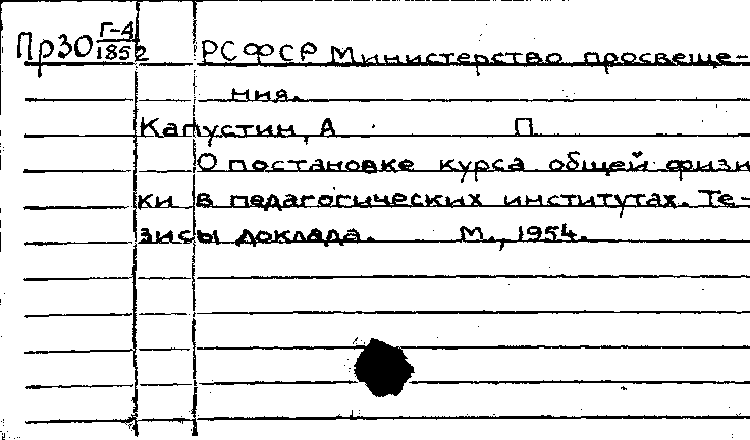 Пр30 Г-4/1852 РСФСР Министерство просвеще-
ния.
Капустин, А П.
О постановке курса общей физи
ки в педагогических институтах. Те-
зисы доклада. М., 1954.